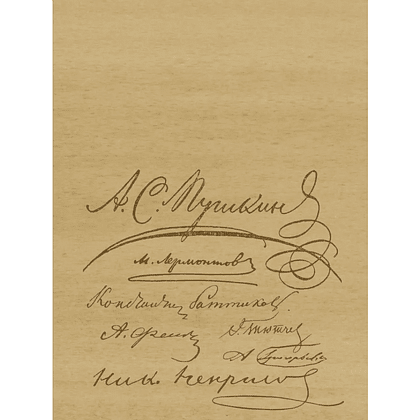 А. С. Пушкинъ
М. Лермонтовъ
Константинъ Батюшковъ.
А. Фетъ Ѳ. Тютчевъ
А. Григорьевъ
Ник. Некрасовъ